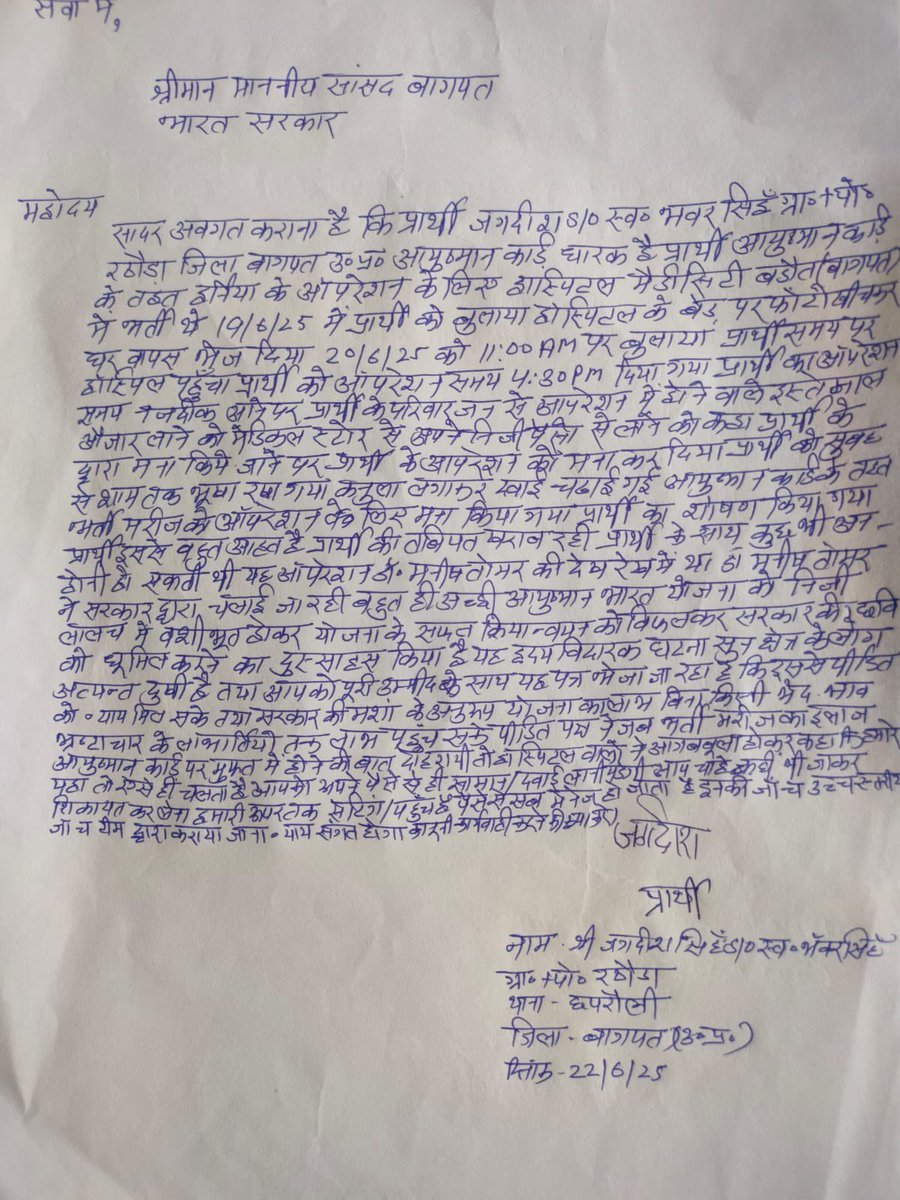 सेवा में,
श्रीमान माननीय सांसद बागपत
भारत सरकार
महोदय
सादर अवगत कराना है कि प्रार्थी जगदीश S/o स्व० भवर सिहँ ग्रा०+पो०
रठौडा जिला बागपत उ०प्र० आयुष्मान कार्ड धारक है प्रार्थी आयुष्मान कार्ड
के तहत हर्निया के ऑपरेशन के लिए हास्पिटल मैडीसिटी बडौत (बागपत)
में भर्ती थे 19/6/25 में प्रार्थी को बुलाया होस्पिटल के बेड पर फोटो खीचकर
घर वापस भेज दिया 20/6/25 को 11:00 AM पर बुलाया प्रार्थी समय पर
हास्पिल पहुँचा प्रार्थी को ऑपरेशन समय 4:30PM दिया गया प्रार्थी का ऑपरेशन
समय नजदीक आने पर प्रार्थी के परिवारजन से आपरेशन में होने वाले इस्तेमाल
औजार लाने को मेडिकल स्टोर से अपने निजी पैसो से लाने को कहा प्रार्थी के
द्वारा मना किये जाने पर प्रार्थी के आपरेशन को मना कर दिया प्रार्थी को सुबह
से शाम तक भूखा रखा गया केनुला लगाकर दवाई चढाई गई आयुष्मान कार्ड के तहत
भर्ती मरीज को ऑपरेशन के लिए मना किया गया प्रार्थी का शोषण किया गया
प्रार्थी इससे बहुत आहत है प्रार्थी की तबियत खराब रही प्रार्थी के साथ कुछ भी अन-
होनी हो सकती थी यह ऑपरेशन डॉ. मनीष तोमर की देख रेख में था डा मनीष तोमर
ने सरकार द्वारा चलाई जा रही बहुत ही अच्छी आयुष्मान भारत योजना को निजी
लालच में वशीभूत होकर योजना के सफल क्रियान्वयन को विफल कर सरकार की छवि
को धूमिल करने का दुस्साहस किया है यह हृदय विदारक घटना सुन क्षेत्र के लोग
अत्यन्त दुखी है तथा आपको पूरी उम्मीद के साथ यह पत्र भेजा जा रहा है कि इससे पीडित
को न्याय मिल सके तथा सरकार की मंशा के अनुरूप योजना का लाभ बिना किसी भेद-भाव
भ्रष्टाचार के लाभार्थियो तक लाभ पहुंच सके पीडित पक्ष ने जब भर्ती मरीज का इलाज
आयुष्मान कार्ड पर मुफ्त में होने की बात दोहरायी तो हास्पिटल वालो ने आगबबूला होकर कहा कि हमारे
यहा तो ऐसे ही चलता है आपको अपने पैसे से ही सामान/दवाई लानी पडेगी आप चाहे कही भी जाकर
शिकायत कर लेना हमारी ऊपर तक सेटिंग/पहुंच है पैसे से सब मैनेज हो जाता है इनकी जाँच उच्चस्तरीय
जाँच टीम द्वारा कराया जाना न्याय संगत होगा
जगदीश
प्रार्थी
नाम - श्री जगदीश सिहँ S/o स्व० भँवर सिहँ
ग्रा०+पो० रठौडा
थाना - छपरौली
जिला - बागपत (उ०प्र०)
दिनांक - 22/6/25